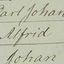 Carl Johan
Alfrid
Johan